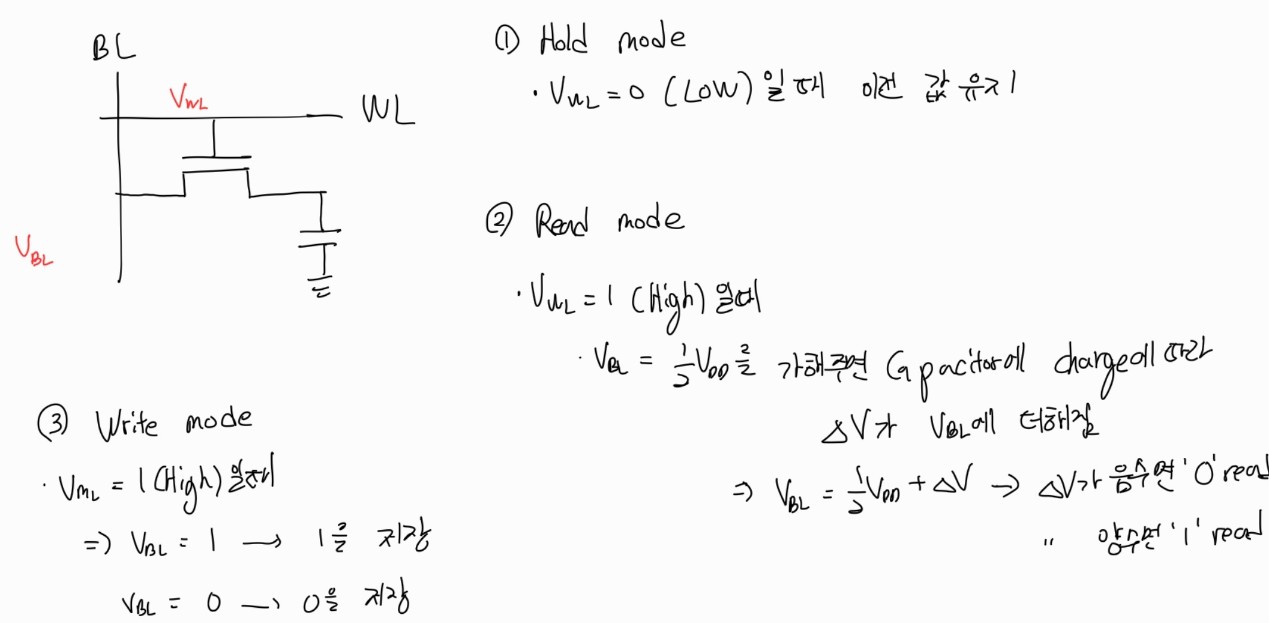 BL
V_WL
WL
V_BL
① Hold mode
· V_WL = 0 (LOW) 일때 이전 값 유지
② Read mode
· V_WL = 1 (High) 일때
· V_BL = 1/2 V_DD를 가해주면 Capacitor에 charge에 따라
△V가 V_BL에 더해짐
⇒ V_BL = 1/2 V_DD + △V → △V가 음수면 '0' read
" 양수면 '1' read
③ Write mode
· V_WL = 1 (High) 일때
⇒ V_BL = 1 → 1을 저장
V_BL = 0 → 0을 저장